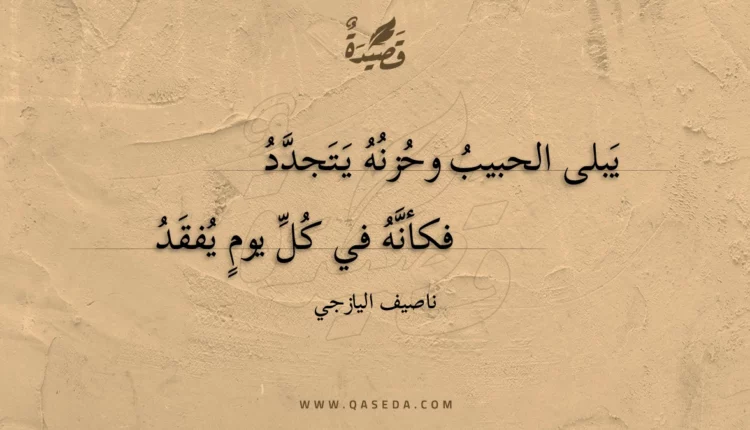 قَصِيدَةٌ
يَبلى الحبيبُ وحُزنُهُ يَتَجدَّدُ
فكأنَّهُ في كُلِّ يومٍ يُفقَدُ
ناصيف اليازجي
WWW.QASEDA.COM